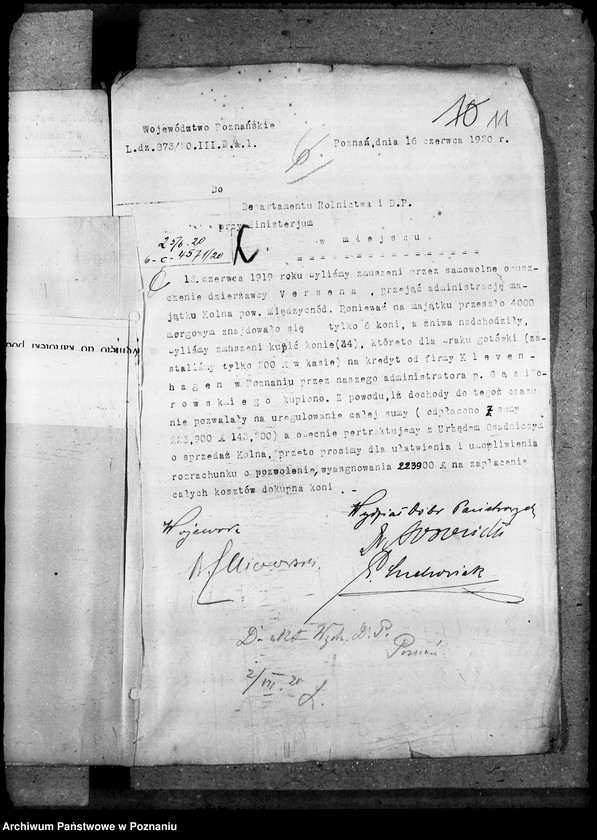 10 11
Województwo Poznańskie
L.dz.873/20.III.D.A.1.
Poznań,dnia 16 czerwca 1920 r.
Do
Departamentu Rolnictwa i D.P.
przy Ministerjum
w miejscu
25/6.20
6-C-4571/20
13.czerwca 1919 roku byliśmy zmuszeni przez samowolne opusz-
czenie dzierżawcy Versena , przejąć administrację ma-
jątku Kolna pow. Międzychód. Ponieważ na majątku przeszło 4000
morgowym znajdowało się tylko 6 koni, a żniwa nadchodziły,
byliśmy zmuszeni kupić konie(44), któreto dla braku gotówki (za-
staliśmy tylko 200 M w kasie) na kredyt od firmy Kleven-
hagen w Poznaniu przez naszego administratora p. Gąsio-
rowskiego kupiono. Z powodu,iż dochody do tegoż czasu
nie pozwalały na uregulowanie całej sumy ( odpłacono z sumy
223,900 M 143,000) a obecnie pertraktujemy z Urzędem Osadniczym
o sprzedaż Kolna, przeto prosimy dla ułatwienia i umożliwienia
rozrachunku o pozwolenie, wyasygnowania 223900 M na zapłacenie
całych kosztów dokupna koni . -
Wojewoda
Wydział Dóbr Państwowych
Do akt Wydz. D.P.
Poznań
2/VII.20
Archiwum Państwowe w Poznaniu